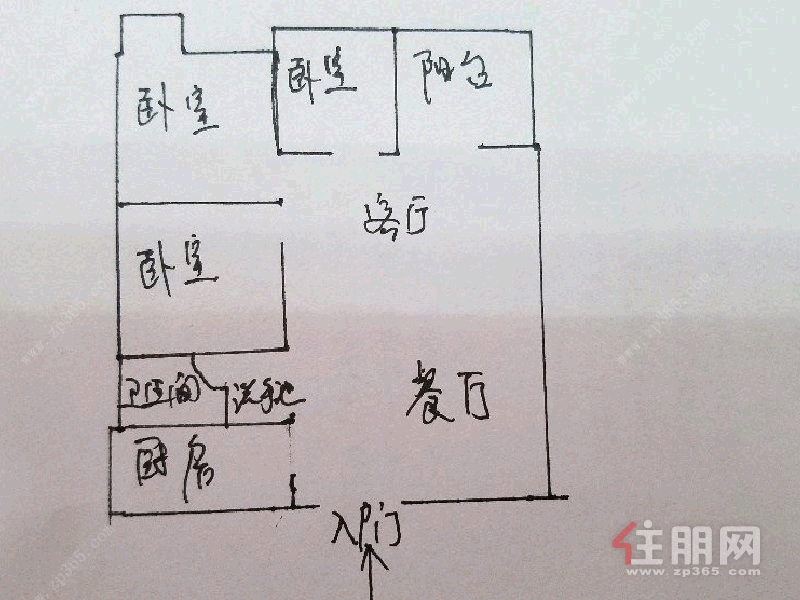 卧室
卧室
阳台
客厅
卧室
卫生间
洗手池
餐厅
厨房
入户门
住朋网
www.zp365.com